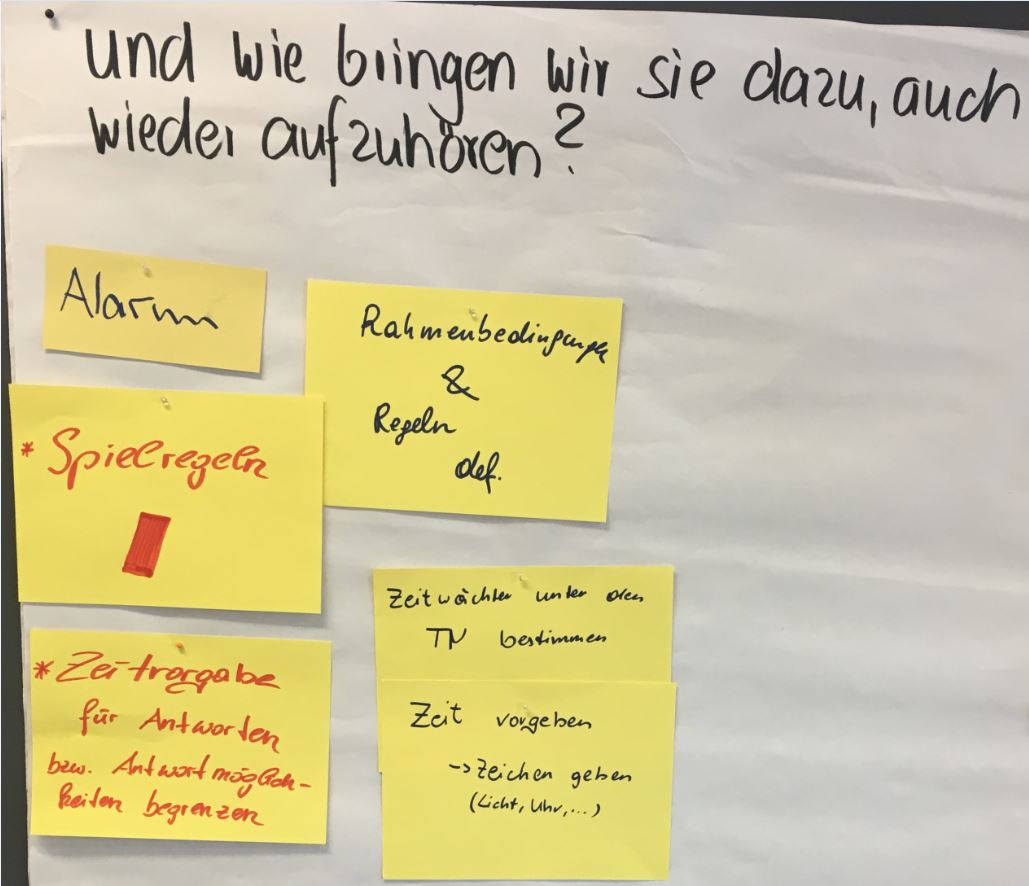 und wie bringen wir sie dazu, auch
wieder aufzuhören?
Alarm
Rahmenbedingungen
&
Regeln
def.
* Spielregeln
Zeitwächter unter den
TN bestimmen
* Zeitvorgabe
für Antworten
bzw. Antwortmöglich-
keiten begrenzen
Zeit vorgeben
-> Zeichen geben
(Licht, Uhr, ...)